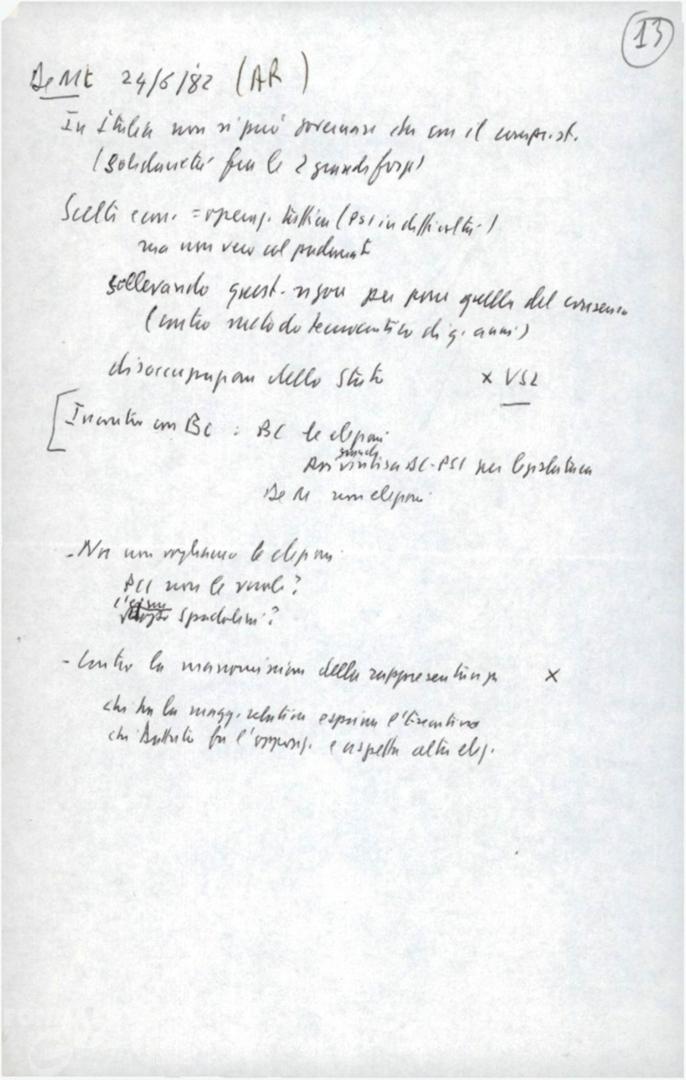 13
De Mt 24/6/'82 (AR)
In Italia non si può governare che con il comprost.
(solidarietà fra le 2 grandi forze)
Scelti econ. = operaz. tattica (PSI in difficoltà)
ma non vero col
sollevando quest. rigore per porre quella del consenso
(contro metodo tecnocratico di q. anni)
disoccupazione dello Stato × VS2
Incontro con BC : BC le elezioni
BC-PSI per legislatura
De M non elezioni
- Noi non vogliamo le elezioni
PCI non le vuole?
Spadolini?
- Contro la manomissione della rappresentanza ×
chi ha la magg. relativa esprime l'Esecutivo
chi battuto fa l'oppos. e aspetta altre elez.